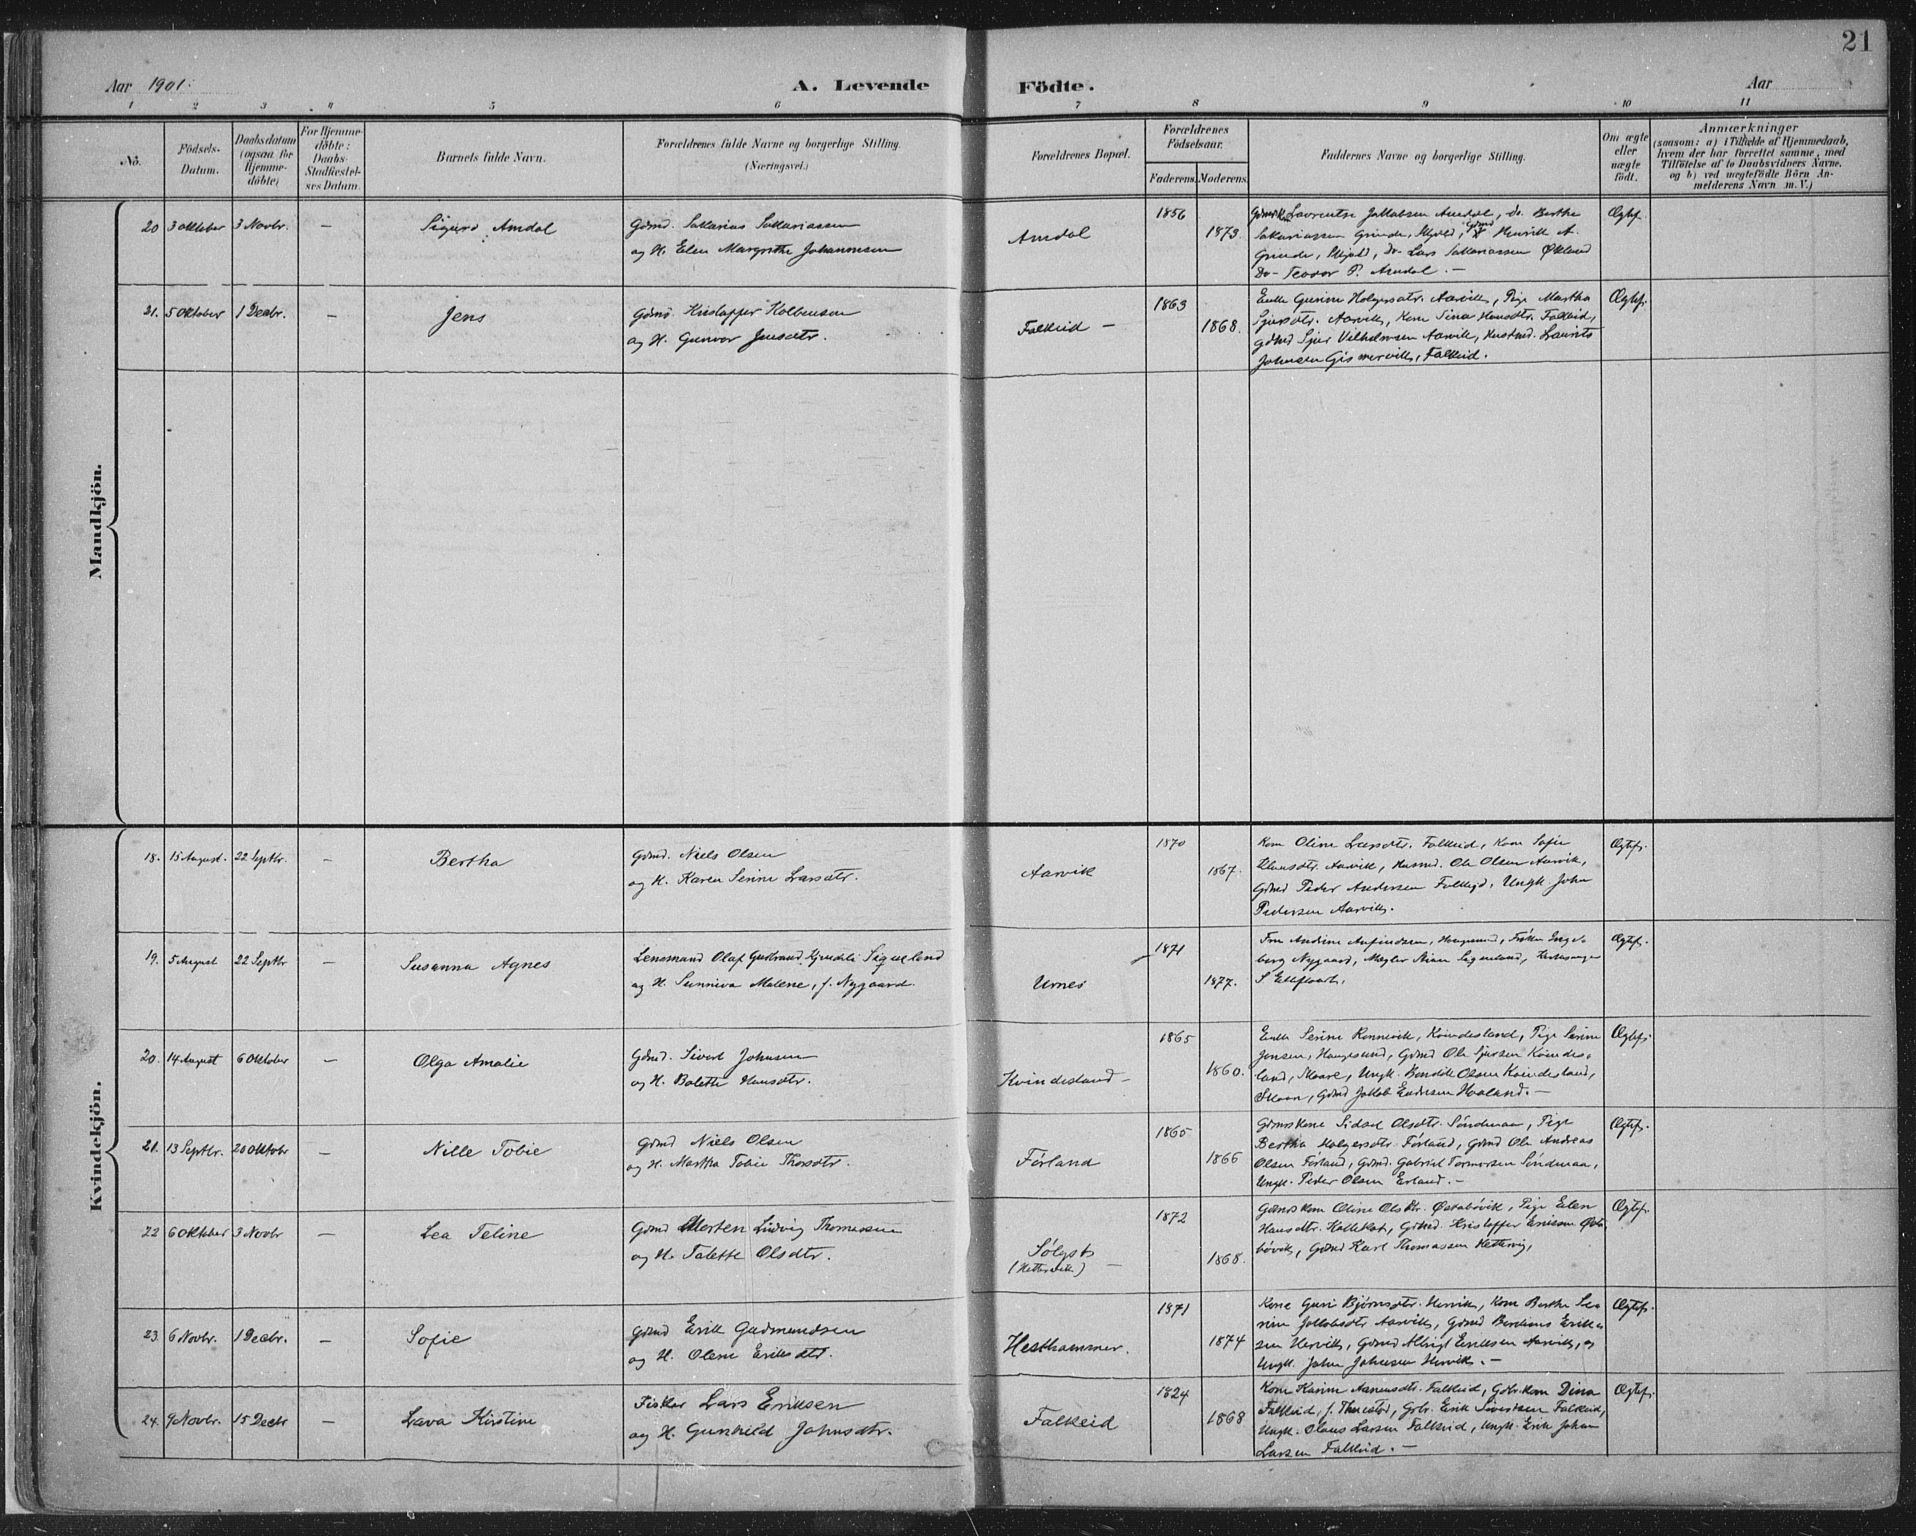 21
Aar 1901.
A. Levende
Födte.
Aar
1 2 3 4 5 6 7 8 9 10 11
No.
Födsels-Datum.
Daabsdatum (ogsaa for Hjemme-döbte)
For Hjemme-döbte: Daabs-Stadfæstel-ses Datum.
Barnets fulde Navn.
Forældrenes fulde Navne og borgerlige Stilling.
(Næringsvei.)
Forældrenes Bopæl.
Forældrenes Födselsaar.
Faderens. Moderens.
Faddernes Navne og borgerlige Stilling.
Om ægte eller uægte födt.
Anmærkninger
(saasom: a) i Tilfælde af Hjemmedaab,
hvem der har forrettet samme, med
Tilföielse af to Daabsvidners Navne.
og b) ved uægtefödte Börn An-
melderens Navn m. V.)
Mandkjön.
20 3 Oktober 3 Novbr. – Sigurd Amdal
Gdmd. Sakarias Sakariassen
og H. Elen Margrethe Johannesen
Amdal
1856
1873.
Laurentse Jakobsen Amdal, Do. Berthe
Sakariassen Grinde, Skjold, Henrik A.
Grinde, Skjold, Do- Lars Sakariassen Økland
Do- Teodor P. Amdal. –
Ægtef.
21. 5 Oktober 1 Decbr. – Jens
Gdmd. Kristoffer Kolbensen
og H. Gunvor Jensdtr.
Falkeid –
1863
1868.
Enke Gurine Holgersdtr. Aarvik, Pige Martha
Sjursdtr. Aarvik, Kone Sina Hansdtr. Falkeid,
Gdmd Sjur Vilhelmsen Aarvik, Husmd. Laurits
Johnsen Gismervik, Falkeid.
Ægtef.
Kvindekjön.
18. 15 August. 22 Septbr. – Bertha
Gdmd. Niels Olsen
og H. Karen Serine Larsdtr.
Aarvik
1870
1867.
Kone Oline Larsdtr. Falkeid, Kone Sofie
Hansdtr. Aarvik, Husmd. Ole Olsen Aarvik,
Gdmd Peder Andersen Falkejd, Ungk John
Pedersen Aarvik.
Ægtef.
19. 5 August 22 Septbr – Susanna Agnes
Lensmand Olaf Gudbrand Signeland
og H. Sunniva Malene, f. Nygaard.
Urnes
1871
1877.
Fru Andrine Haugesund, Frøken Engel-
borg Nygaard, Mægler Sigenland, Kirkesanger
S
Ægtef.
20. 14 August 6 Oktober – Olga Amalie
Gdmd. Sivert Johnsen
og H. Bolette Hansdtr.
Kvindesland –
1865
1860.
Enke Serine Rønnevik, Kvindesland, Pige Serine
Jensen, Haugesund, Gdmd Ole Sjursen Kvindes-
land, Skaare, Ungk. Bendik Olsen Kvindesland,
Gdmd Jakob Endresen Haaland. –
Ægtef.
21. 13 Septbr. 20 Oktobr – Nille Tobie
Gdmd Niels Olsen
og H. Martha Tobie Thorsdtr.
Førland
1865
1866
Gdmdskone Sidsel Olsdtr. Søndenaa, Pige
Bertha Holgersdtr. Førland, Gdmd Ole Andreas
Olsen Førland, Gdmd. Gabriel Tormodsen Søndenaa,
Ungk. Peder Olsen Erland. –
Ægtef.
22 6 Oktober 3 Novbr – Lea Teline
Gdmd Morten Ludvig Thomassen
og H. Talette Olsdtr.
(Hettervik) –
1872
1868.
Gdmdskone Oline Olsdtr. Østabøvik, Pige Elen
Hansdtr. Kallekot, Gdmd. Kristoffer Eriksen Østa-
bøvik, Gdmd Karl Thomassen Hettervig,
Ægtef.
23. 6 Novbr. 1 Decbr. – Sofie
Gdmd Erik Gudmundsen
og H. Olene Eriksdtr.
Hesthammer.
1871
1874
Kone Guri Bjørnsdtr. Hervik, Kone Berthe Se-
rine Jakobsdtr Aarvik, Gdmd Berdines Erik-
sen Hervik, Gdmd Albrigt Eriksen Aarvik, og
Ungk. John Johnsen Hervik. –
Ægtef.
24. 9 Novbr. 15 Decbr – Lava Kirstine
Fisker Lars Eriksen
og H. Gunhild Johnsdtr.
Falkeid
1824
1868
Kone Karine Aanensdtr. Falkeid, Gdbr.kone Dina
Falkeid, f. Gdbr. Erik Sivertsen Falkeid,
Ungk. Olaus Larsen Falkeid, Ungk. Erik Johan
Larsen Falkeid. –
Ægtef.